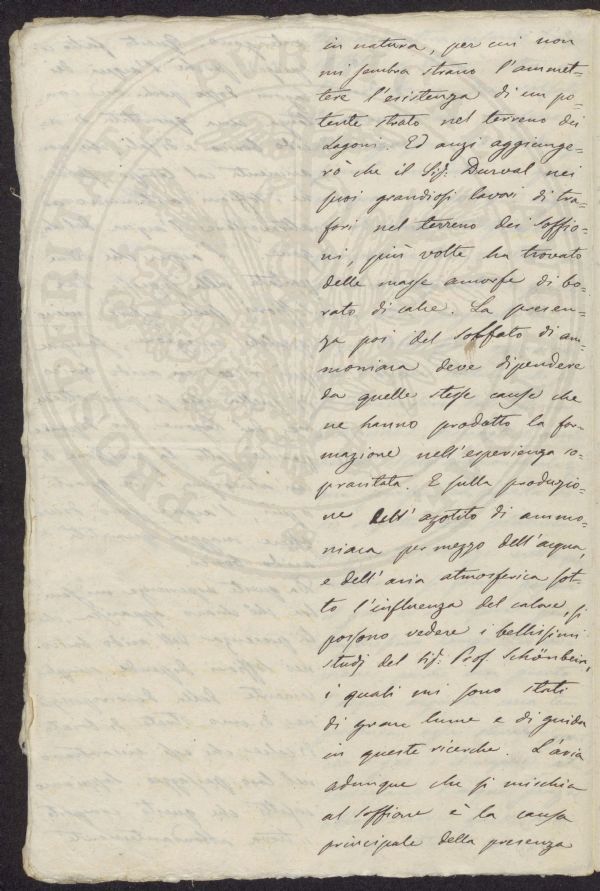 in natura, per cui non
mi sembra strano l'ammet=
tere l'esistenza di un po=
tente strato nel terreno dei
Lagoni. Ed anzi aggiunge=
rò che il Sig. Durval nei
suoi grandiosi lavori di tra=
fori nel terreno dei soffio=
ni, più volte ha trovato
delle masse amorfe di bo=
rato di calce. La presen=
za poi del solfato di am=
moniaca deve dipendere
da quelle stesse cause che
ne hanno prodotto la for=
mazione nell'esperienza so=
pracitata. E sulla produzio=
ne dell'azotito di ammo=
niaca per mezzo dell'acqua,
e dell'aria atmosferica sot=
to l'influenza del calore, si
possono vedere i bellissimi
studj del Sig. Prof Schönbein,
i quali mi sono stati
di gran lume e di guida
in queste ricerche. L'aria
adunque che si mischia
al soffione è la causa
principale della presenza